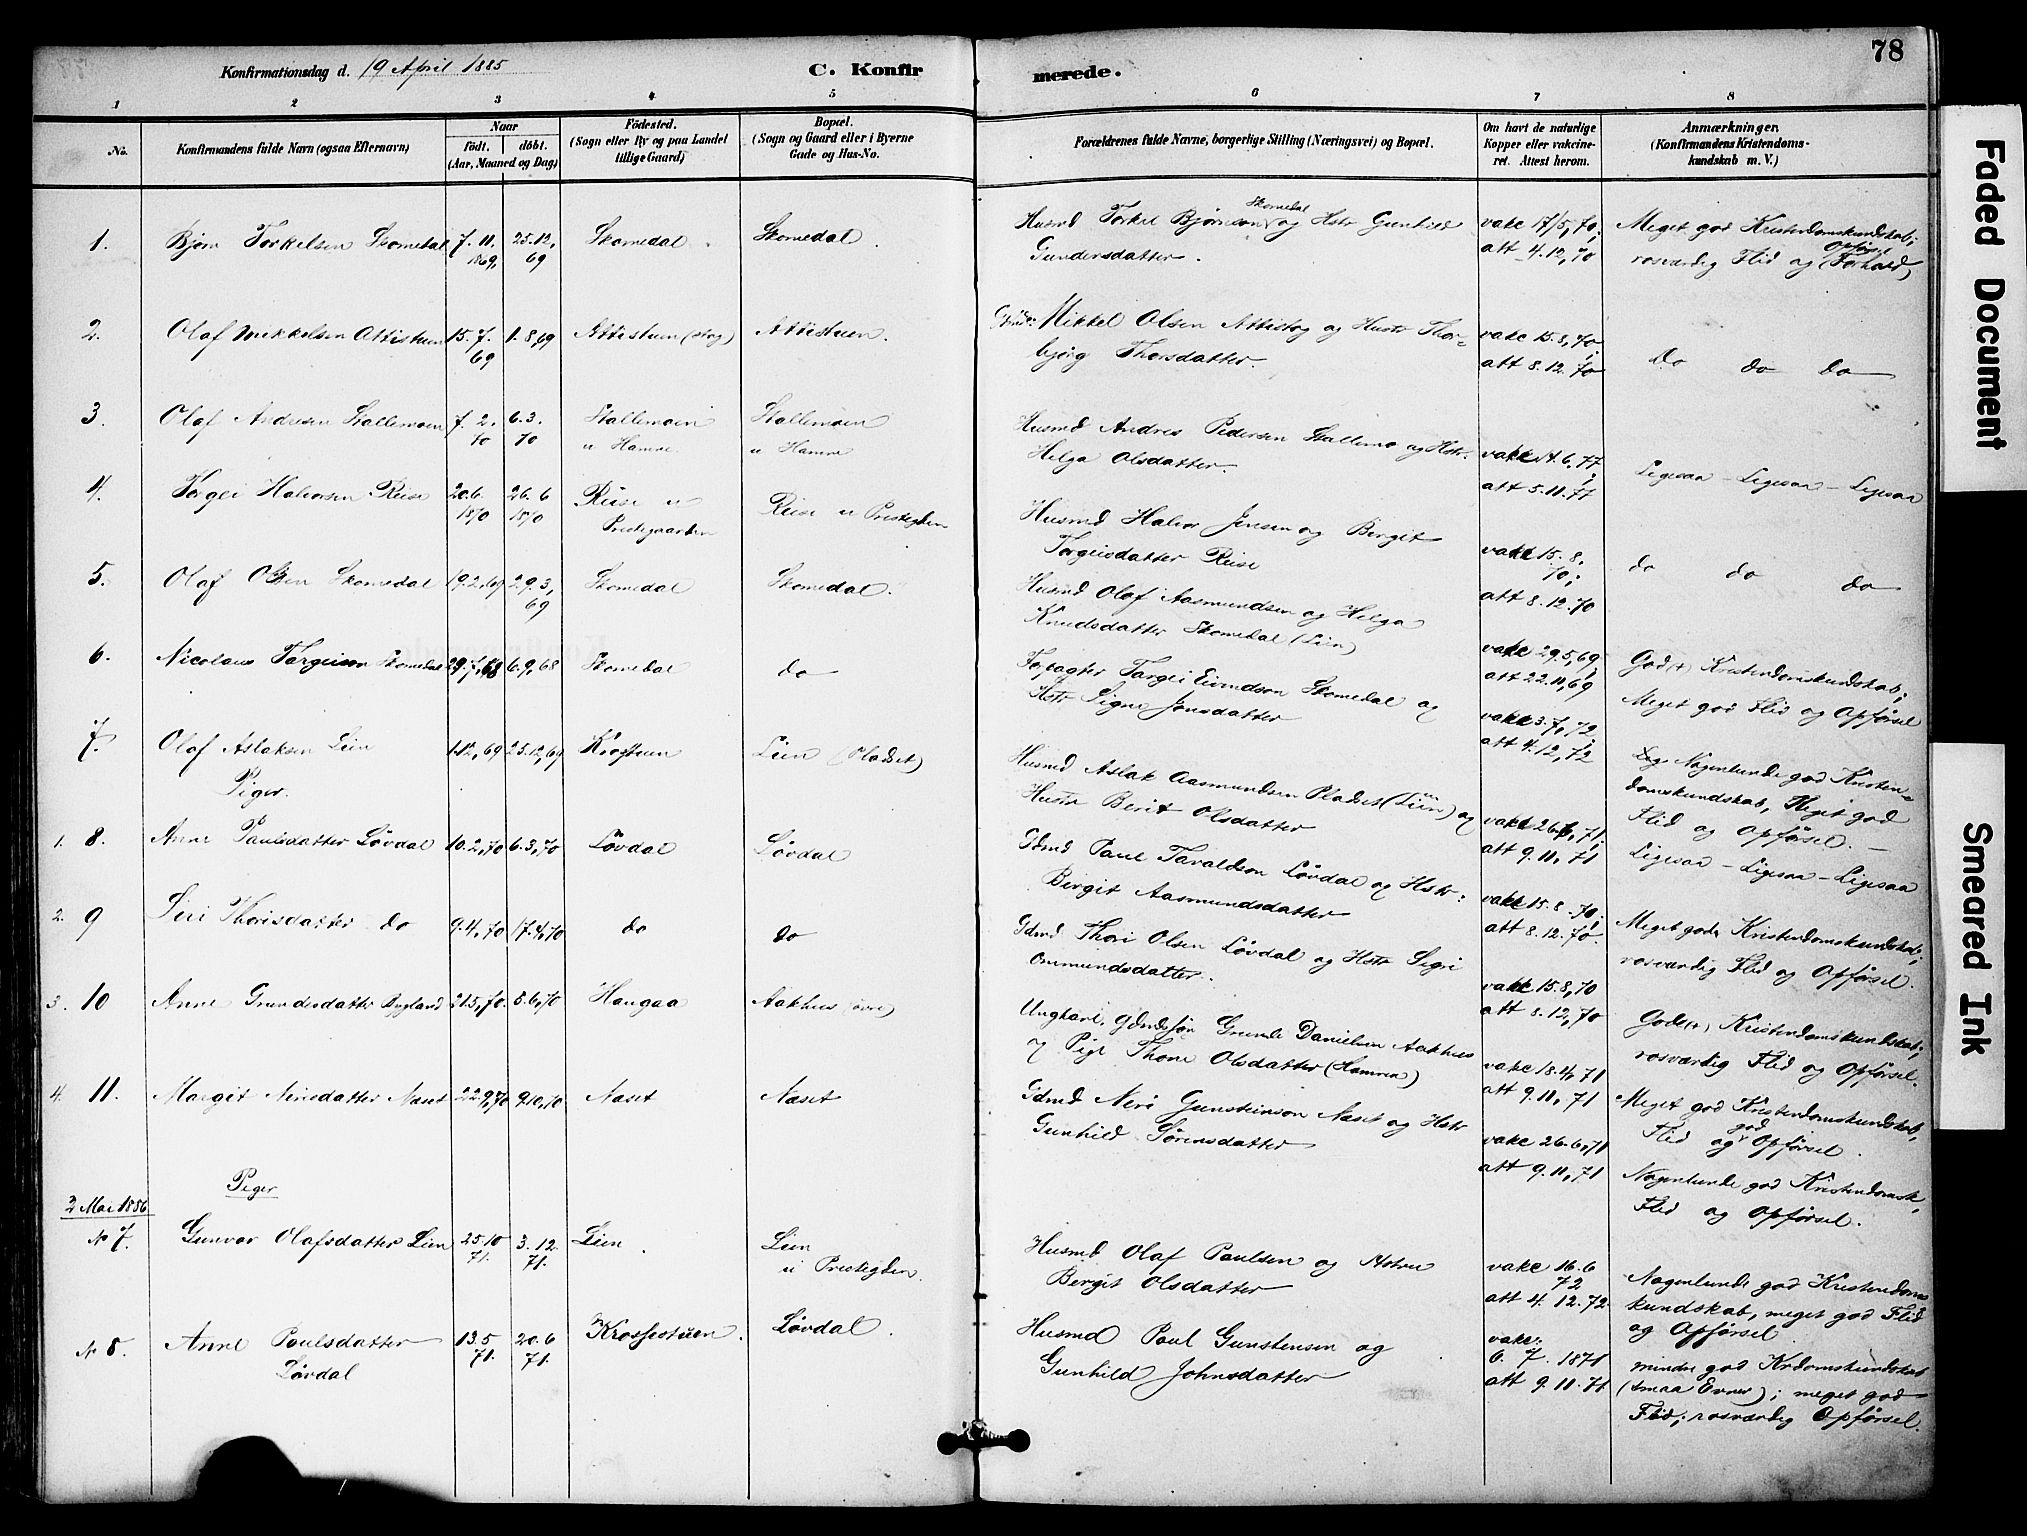 78
Konfirmationsdag d. 19 April 1885
C. Konfirmerede.
1 2 3 4 5 6 7 8
No.
Konfirmandens fulde Navn (ogsaa Efternavn)
Naar
födt. döbt.
(Aar, Maaned og Dag)
Födested.
(Sogn eller By og paa Landet
tillige Gaard)
Bopæl.
(Sogn og Gaard eller i Byerne
Gade og Hus-No.
Forældrenes fulde Navne, borgerlige Stilling (Næringsvei) og Bopæl.
Om havt de naturlige
Kopper eller vakcine-
ret. Attest herom.
Anmærkninger.
(Konfirmandens Kristendoms-
kundskab m. V.)
1. Bjørn Torkelsen Skomedal 7. 11. 1869, 25. 12, 69 Skomedal Skomedal.
Husmd Torkel Bjørnson Skomedal og Hstr Gunhild
Gundersdatter.
vakc 17/5, 70;
att 4. 12, 70
Meget god Kristendomskundskab;
rosværdig Flid og Opførsel (Forhold)
2. Olaf Mikkelsen Attistuen 15. 7. 69 1. 8, 69 Attistuen (stog) Attistuen.
Gmd: Mikkel Olsen Attistog og Hustr Thor-
bjørg Thorsdatter.
vakc 15. 8, 70;
att 8. 12. 70
do do do
3. Olaf Andresen Stallemoen 7. 2. 70 6. 3. 70 Stallemoen
u Hamre. Stallemoen
u Hamre
Husmd Andres Pedersen Stallemo og Hstr.
Helga Olsdatter.
vakc 14. 6, 77;
att 5. 11. 77
Ligesaa – Ligesaa – Ligesaa
4. Torgei Halvorsen Reise 20. 6. 1870 26. 6 1870 Reise u
Prestegaarden Reise u Prestegden
Husmd Halvor Jensen og Bergit
Torgeisdatter Reise
vakc 15. 8. 70;
att 8. 12. 70
do do do
5. Olaf Olsen Skomedal 19. 2, 69 29. 3, 69 Skomedal Skomedal.
Husmd Olaf Aasmundsen og Helga
Knudsdatter Skomedal (Lien)
vakc 29. 5, 69;
att 22. 11, 69
God (+) Kristendomskundskab;
Meget god Flid og Opførsel
6. Nicolaus Targeison Skomedal 29. 7, 68 6. 9, 68 Skomedal do
Forpagter Targei Eivindson Skomedal og
Hstr Signe Jonsdatter
vakc 3. 7, 72;
att 4. 12, 72
Nogenlunde god Kristen-
domskundskab, Meget god
Flid og Opførsel. –
7. Olaf Aslaksen Lien 1. 12, 69 25. 12, 69 Krogstuen Lien (Pladset)
Husmd Aslak Aasmundsen Pladset (Lien) og
Hustr Berit Olsdatter
vakc 26. 6, 71;
att 9. 11, 71
Ligesaa – Ligesaa – Ligesaa
Piger.
1. 8. Anne Paulsdatter Løvdal 10. 2, 70 6. 3, 70 Løvdal Løvdal
Gdmd Paul Tavaldson Løvdal og Hstr:
Bergit Aasmundsdatter
vakc 15. 8. 70;
att 8. 12. 70.
Meget gode Kristendomskundskab;
rosværdig Flid og Opførsel.
2. 9 Siri Thorisdatter do 9. 4, 70 17. 4, 70 do do
Gdmd Thori Olsen Løvdal og Hstr Sigri
Ommundsdatter.
vakc 15. 8, 70
att 8. 12, 70
Gode (+) Kristendomskundskab;
rosværdig Flid og Opførsel.
3. 10 Anne Grundesdatter Bygland 21. 5, 70. 5. 6, 70 Haugaa Aakhus (øvre)
Ungkarl, Gdmdssøn Grunde Danielsen Aakhus
og Pige Thone Olsdatter (Hamren)
vakc 18. 4, 71
att 9. 11, 71
Meget god Kristendomskundskab,
Flid og god Opførsel.
4. 11. Margit Neriedatter Næset 22. 9, 70 9. 10, 70 Næset Næset
Gdmd Neri Gunsteinson Næset og Hstr
Gunhild Sørensdatter
vakc 26. 6, 71
att 9. 11, 71
Nogenlunde god Kristendomsk.
Flid og Opførsel.
Piger
2 Mai 1886
N 7. Gunvor Olafsdatter Lien 25. 10 71. 3. 12. 71. Lien. Lien
u Prestegden.
Husmd Olaf Paulsen og Hstru
Bergit Olsdatter
vakc 16. 6 72
att 4. 12. 72.
Nogenlunde god Kristendoms
kundskab, meget god Flid
og Opførsel
N 8. Anne Paulsdatter
Løvdal 13. 5 71. 20. 6 71. Krossestuen. Løvdal.
Husmd Paul Gunstensen og
Gunhild Johnsdatter
vakc:
6. 7. 1871
att 9. 11. 71
mindre god Krdomskundskab
(smaa Evner); meget god
Flid; rosværdig Opførsel.
Faded Document
Smeared Ink